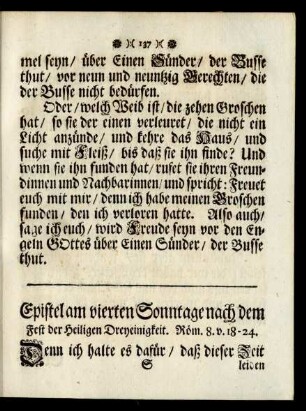 137
mel seyn/ über Einen Sünder/ der Busse
thut/ vor neun und neuntzig Gerechten/ die
der Busse nicht bedürfen.
Oder/ welch Weib ist/ die zehen Groschen
hat/ so sie der einen verleuret/ die nicht ein
Licht anzünde/ und kehre das Haus/ und
suche mit Fleiß/ bis daß sie ihn finde? Und
wenn sie ihn funden hat/ rufet sie ihren Freun-
dinnen und Nachbarinnen/ und spricht: Freuet
euch mit mir/ denn ich habe meinen Groschen
funden/ den ich verloren hatte. Also auch/
sage ich euch/ wird Freude seyn vor den En-
geln GOttes über Einen Sünder/ der Busse
thut.
Epistel am vierten Sonntage nach dem
Fest der Heiligen Dreyeinigkeit. Röm. 8. v. 18-24.
Denn ich halte es dafür/ daß dieser Zeit
S leiden